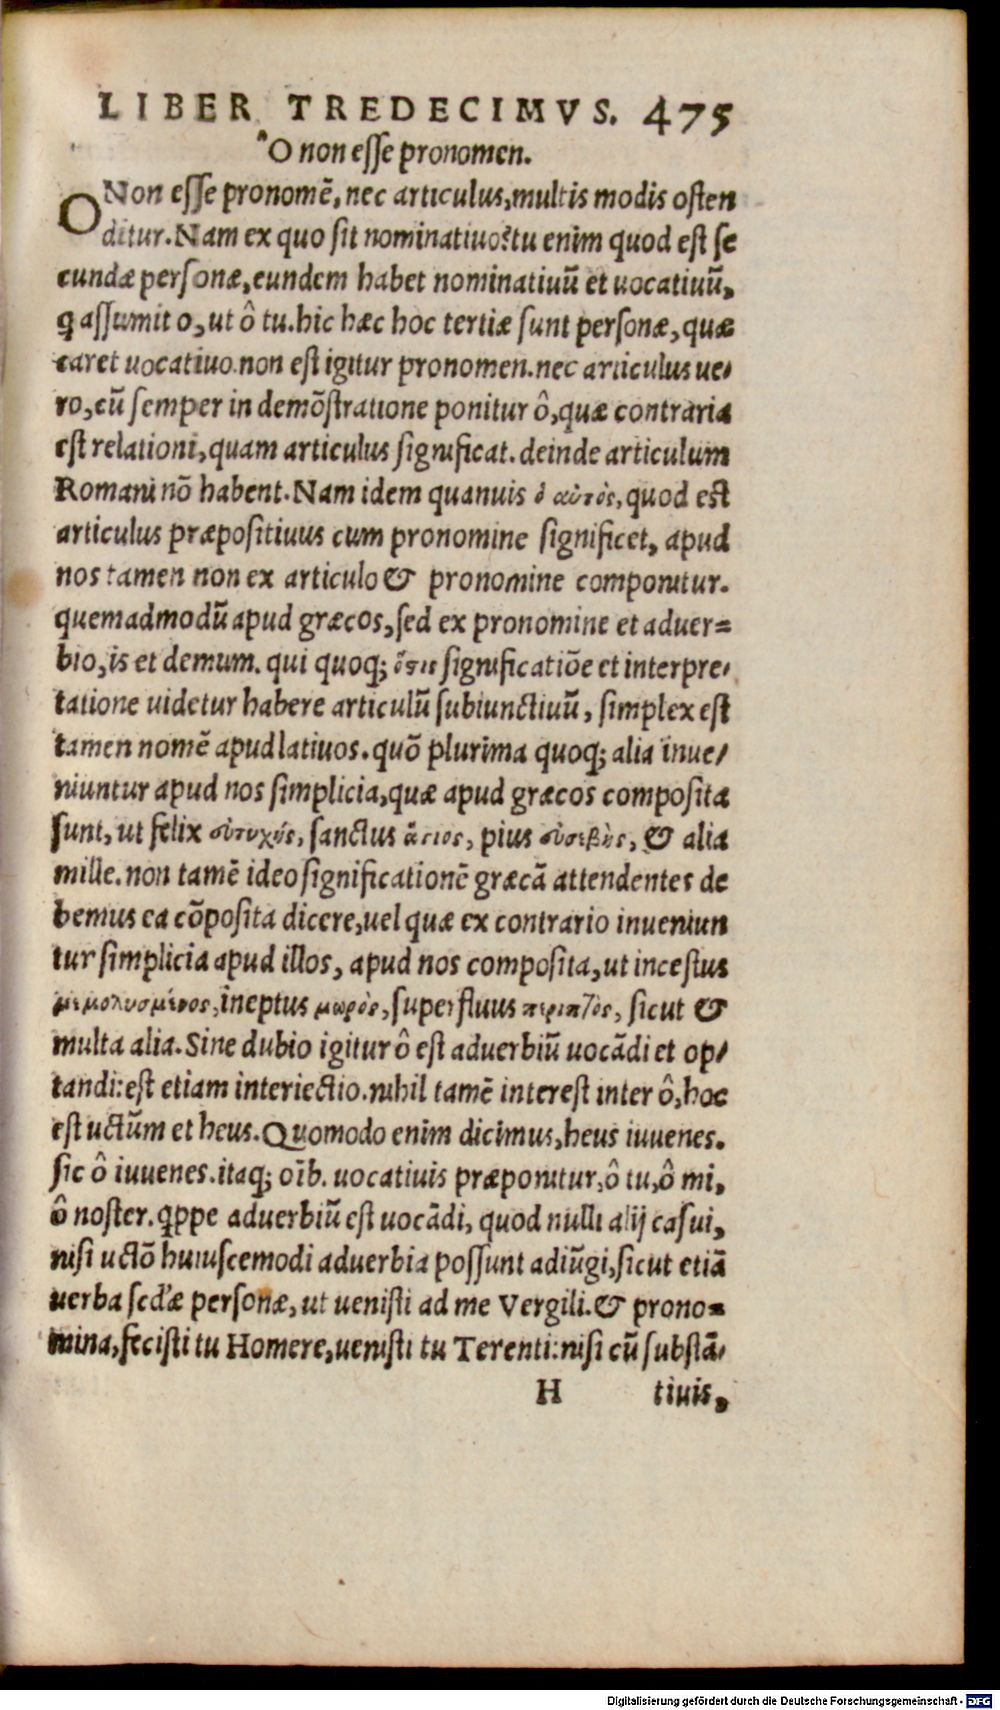 LIBER TREDECIMVS. 475
"O non esse pronomen.
O Non esse pronomē, nec articulus, multis modis osten
ditur. Nam ex quo sit nominatiuo? tu enim quod est se
cundæ personæ, eundem habet nominatiuū et uocatiuū,
q assumit o, ut ô tu. hic hæc hoc tertiæ sunt personæ, quæ
caret uocatiuo. non est igitur pronomen. nec articulus ue-
ro, cū semper in demōstratione ponitur ô, quæ contraria
est relationi, quam articulus significat. deinde articulum
Romani nō habent. Nam idem quanuis ὁ αὐτὸς, quod est
articulus præpositiuus cum pronomine significet, apud
nos tamen non ex articulo & pronomine componitur.
quemadmodū apud græcos, sed ex pronomine et aduer=
bio, is et demum. qui quoq; ὅστις significatiōe et interpre-
tatione uidetur habere articulū subiunctiuū, simplex est
tamen nomē apud latiuos. quō plurima quoq; alia inue-
niuntur apud nos simplicia, quæ apud græcos composita
sunt, ut felix εὐτυχής, sanctus ἅγιος, pius εὐσεβὴς, & alia
mille. non tamē ideo significationē græcā attendentes de
bemus ea cōposita dicere, uel quæ ex contrario inueniun
tur simplicia apud illos, apud nos composita, ut incestus
μεμολυσμένος, ineptus μωρὸς, superfluus περιττὸς, sicut &
multa alia. Sine dubio igitur ô est aduerbiū uocādi et op-
tandi: est etiam interiectio. nihil tamē interest inter ô, hoc
est uctūm et heus. Quomodo enim dicimus, heus iuuenes.
sic ô iuuenes. itaq; oīb. uocatiuis præponitur, ô tu, ô mi,
ô noster. qppe aduerbiū est uocādi, quod nulli alij casui,
nisi uctō huiuscemodi aduerbia possunt adiūgi, sicut etiā
uerba scd'æ personæ, ut uenisti ad me Vergili. & prono=
mina, fecisti tu Homere, uenisti tu Terenti: nisi cū substā-
H tiuis,
Digitalisierung gefördert durch die Deutsche Forschungsgemeinschaft - DFG